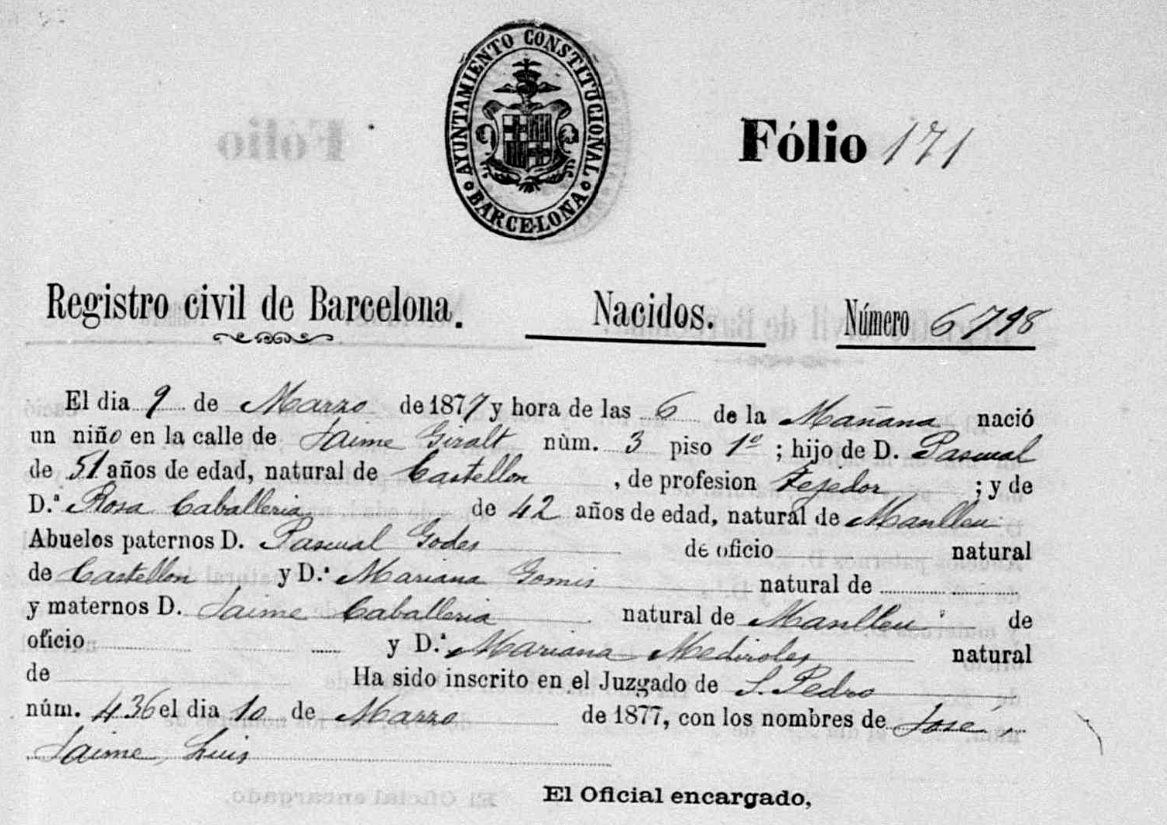 AYUNTAMIENTO CONSTITUCIONAL
BARCELONA
Fólio 171
Registro civil de Barcelona. Nacidos. Número 6798
El dia 9 de Marzo de 1877 y hora de las 6 de la Mañana nació
un niño en la calle de Jaime Giralt núm. 3 piso 1º ; hijo de D. Pascual
de 51 años de edad, natural de Castellon , de profesion Tejedor ; y de
D.ª Rosa Caballeria de 42 años de edad, natural de Manlleu
Abuelos paternos D. Pascual Godes de oficio natural
de Castellon y D.ª Mariana Gomis natural de
y maternos D. Jaime Caballeria natural de Manlleu de
oficio y D.ª Mariana Mediroles natural
de Ha sido inscrito en el Juzgado de S. Pedro
núm. 436 el dia 10 de Marzo de 1877, con los nombres de Jose
Jaime, Luis
El Oficial encargado,